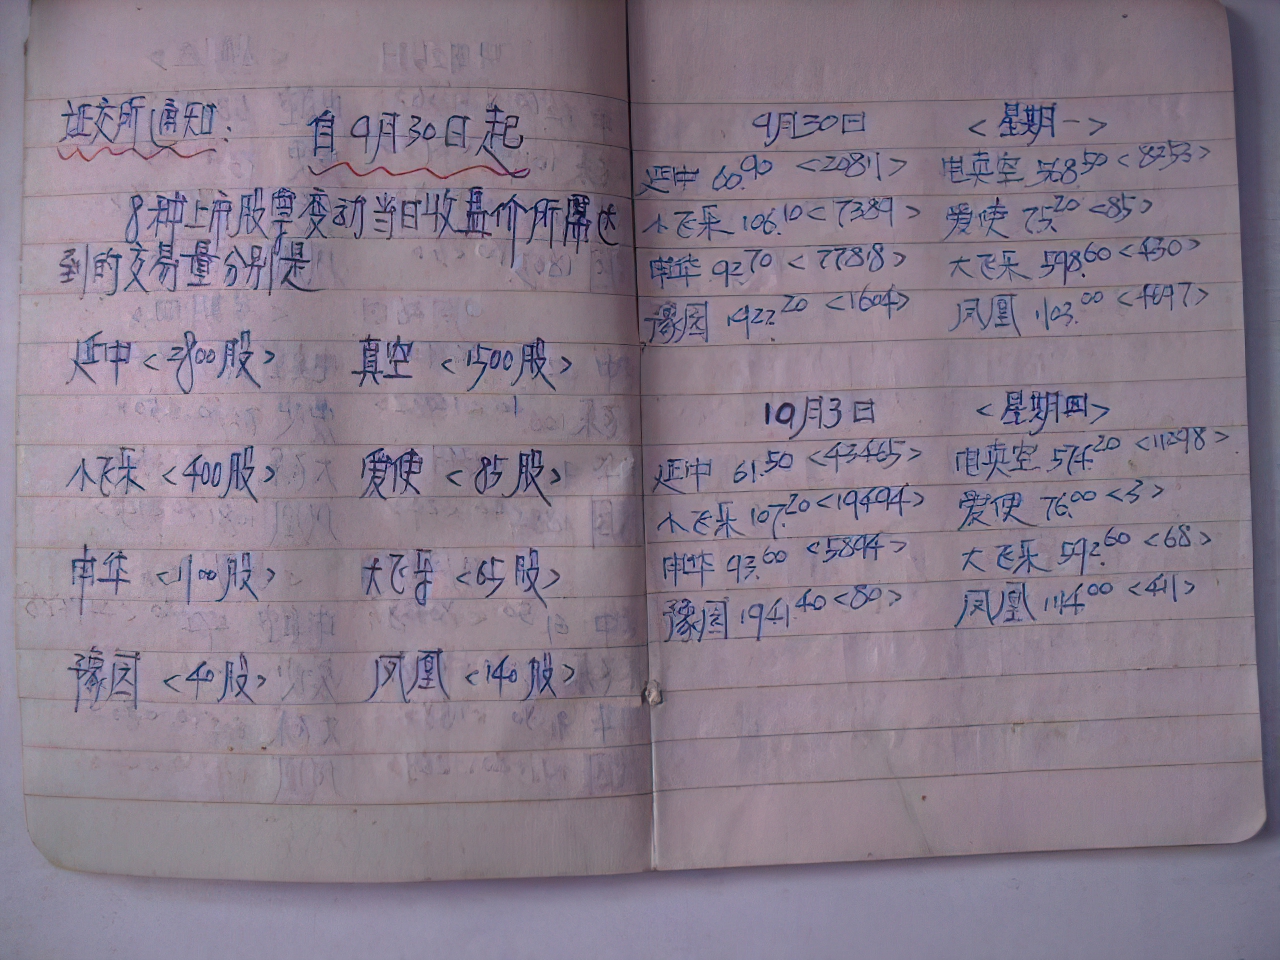 证交所通知: 自9月30日起
8种上市股票变动当日收盘价所需达
到的交易量分别是
延中<2800股> 真空<1500股>
小飞乐<400股> 爱使<85股>
申华<1100股> 大飞乐<65股>
豫园<40股> 凤凰<140股>
9月30日 <星期一>
延中 60.90 <20811> 电真空 568.50 <8253>
小飞乐 106.10 <7389> 爱使 75.20 <85>
申华 92.70 <7788> 大飞乐 598.60 <430>
豫园 1922.20 <1604> 凤凰 103.00 <4697>
10月3日 <星期四>
延中 61.50 <43465> 电真空 574.20 <11298>
小飞乐 107.20 <19494> 爱使 76.00 <3>
申华 93.60 <5894> 大飞乐 592.60 <68>
豫园 1941.40 <80> 凤凰 104.00 <411>